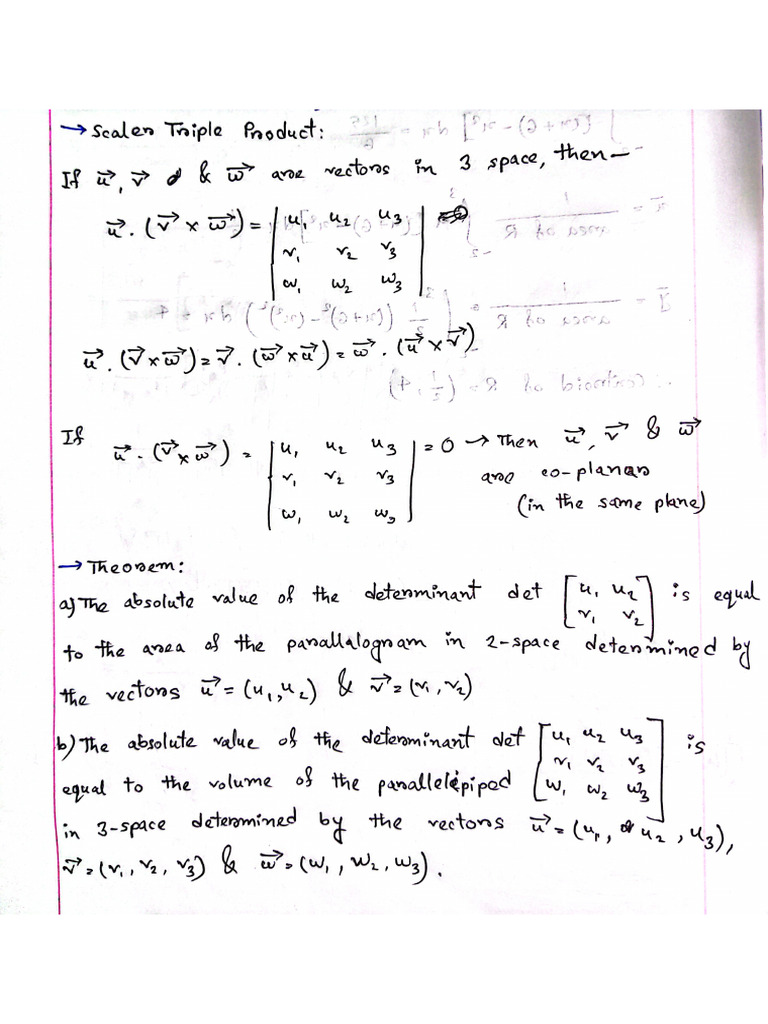 → Scaler Triple Product:
If u⃗, v⃗ & w⃗ are vectors in 3 space, then—
u⃗ . (v⃗ × w⃗) = | u₁ u₂ u₃ |
| v₁ v₂ v₃ |
| w₁ w₂ w₃ |
u⃗ . (v⃗ × w⃗) = v⃗ . (w⃗ × u⃗) = w⃗ . (u⃗ × v⃗)
If u⃗ . (v⃗ × w⃗) = | u₁ u₂ u₃ | = 0 → Then u⃗, v⃗ & w⃗
| v₁ v₂ v₃ | are co-planar
| w₁ w₂ w₃ | (in the same plane)
→ Theorem:
a) The absolute value of the determinant det [ u₁ u₂ ] is equal
[ v₁ v₂ ]
to the area of the parallalogram in 2-space determined by
the vectors u⃗ = (u₁, u₂) & v⃗ = (v₁, v₂)
b) The absolute value of the determinant det [ u₁ u₂ u₃ ] is
[ v₁ v₂ v₃ ]
equal to the volume of the parallelepiped [ w₁ w₂ w₃ ]
in 3-space determined by the vectors u⃗ = (u₁, u₂, u₃),
v⃗ = (v₁, v₂, v₃) & w⃗ = (w₁, w₂, w₃).